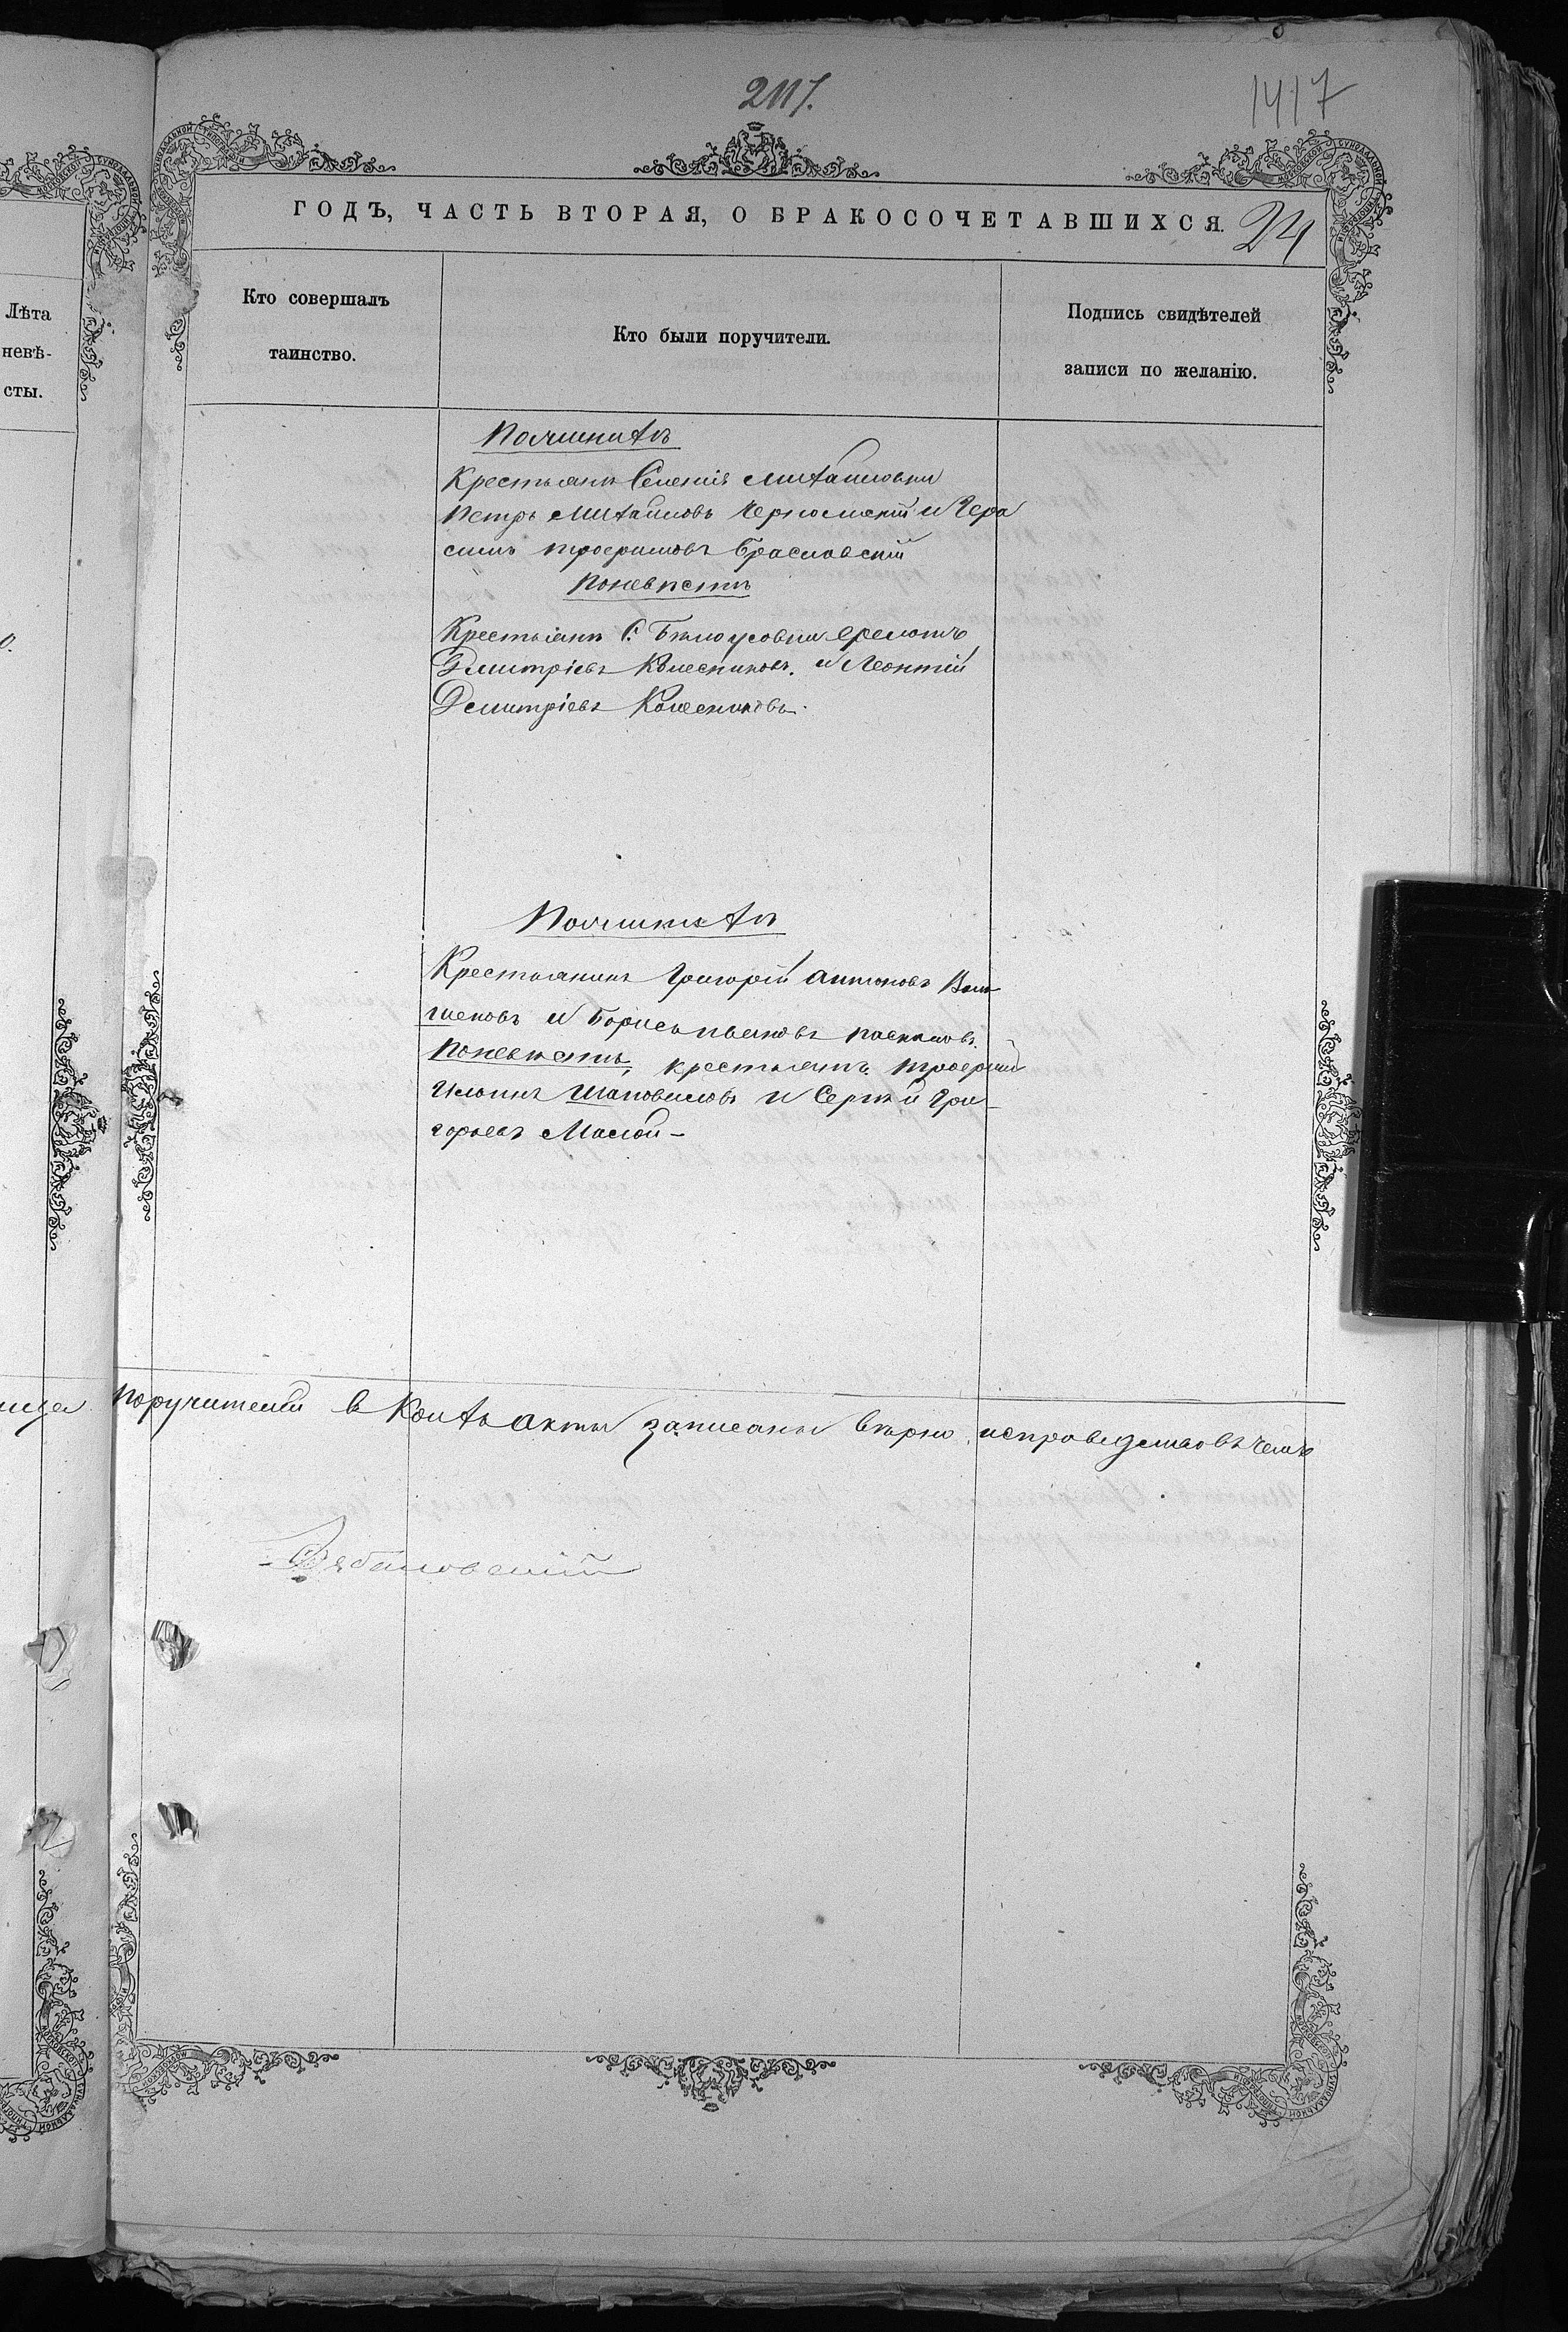 2117.
1417
ГОДЪ, ЧАСТЬ ВТОРАЯ, О БРАКОСОЧЕТАВШИХСЯ.
24
Лѣта
невѣ-
сты.
Кто совершалъ
таинство.
Кто были поручители.
Подпись свидѣтелей
записи по желанію.
По женихѣ
Крестьяне Селенія Михайловки
Петръ Михайловъ и Гера
симъ Трофимовъ Браславскій
По невѣстѣ
Крестьяне С. Бѣлоусовки
Дмитріевъ Колесниковъ и Леонтій
Демитріевъ Колесниковъ.
По женихѣ
Крестьянинъ Григорій Антоновъ
и Борисъ Ивановъ
По невѣстѣ, крестьяне Трофимъ
Шаповаловъ и Сергѣй Гри-
горьевъ Маслой-
поручители в коихъ акты записаны вѣрно